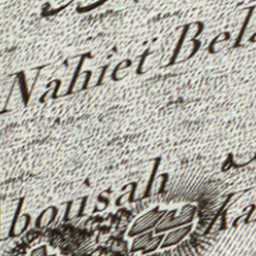 Nahiet Bel
bousah
Ka